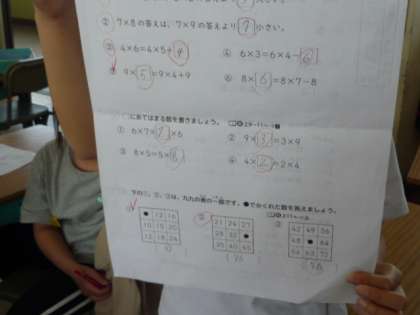 ② 7×8の答えは、7×9の答えより 7 小さい。
③ 4×6=4×5+4
④ 6×3=6×4-6
⑤ 9×5=9×4+9
⑥ 8×6=8×7-8
にあてはまる数を書きましょう。
① 6×7=7×6
② 9×3=3×9
③ 8×5=5×8
④ 4×2=2×4
下の①、②、③は、九九の表の一部です。●でかくれた数を答えましょう。
① ② ③
● 12 16
10 15 20
12 18 24
21 24 27
28 32 ●
35 40 45
42 49 56
48 ● 64
54 63 72